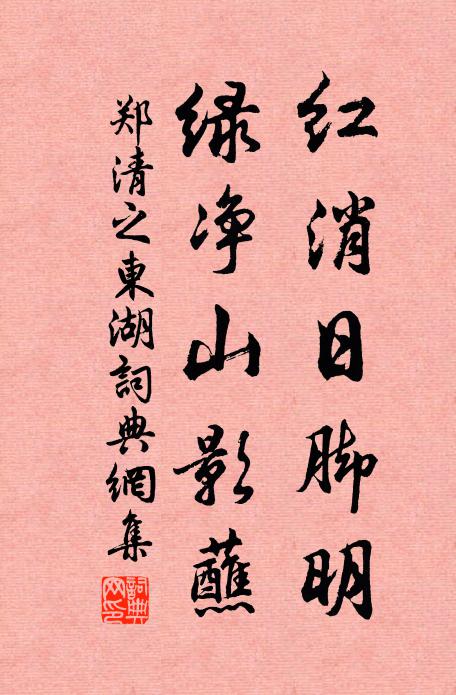 红消日脚明
緑净山影蘸
郑清之東湖詞典網集
詞典网印